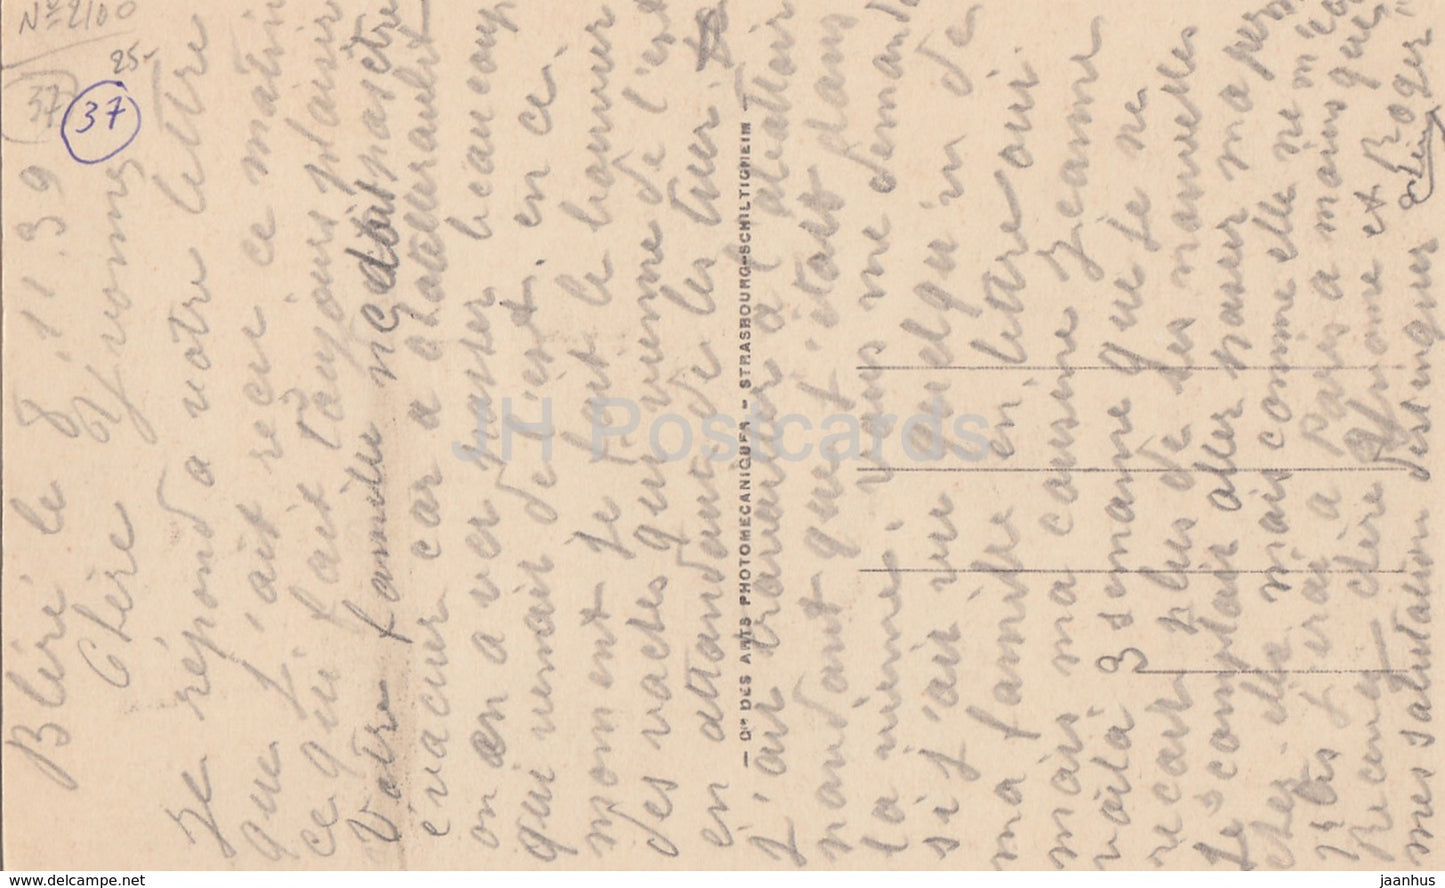 N° 2100
25-
37
37
Bléré le 8.11.39
Chère Yvonne
Je répond a votre lettre
que j'ait recu ce matin
ce qui fait toujours plaisir
Votre famille ne doit pas être
évacuer car a Chatellerault
on en a ver passer beaucoup
qui venait de l'est. en ce
moment je fait le bonnes
des vaches qui vienne de l'est
en attandant de les tuer.
j'ait travailler a l'abattoir
pandant que j'étais dans
la mienne. Vous me demande
si j'ait vu quelqu'un de
ma famille en lettre oui
mais ma cousine Jeanne
voila 3 semaine que je ne
recoit plus de ses nouvelles
Je comptait aller passer ma perm
chez elle mais comme elle ne m'écrit
plus j'irai a Paris a moins que
Recevez chère Yvonne et Roger
mes salutation distinguer
— Cie DES ARTS PHOTOMECANIQUES - STRASBOURG-SCHILTIGHEIM —
JH Postcards
www.delcampe.net
jaanhus